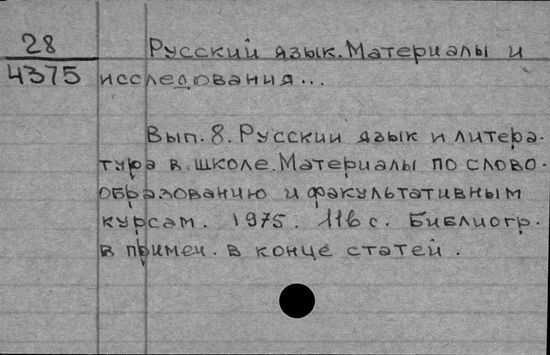 28
4375
Русский язык. Материалы и
исследования...
Вып. 8. Русский язык и литера-
тура в школе. Материалы по слово-
образованию и факультативным
курсам. 1975. 116 с. Библиогр.
в примеч. в конце статей.